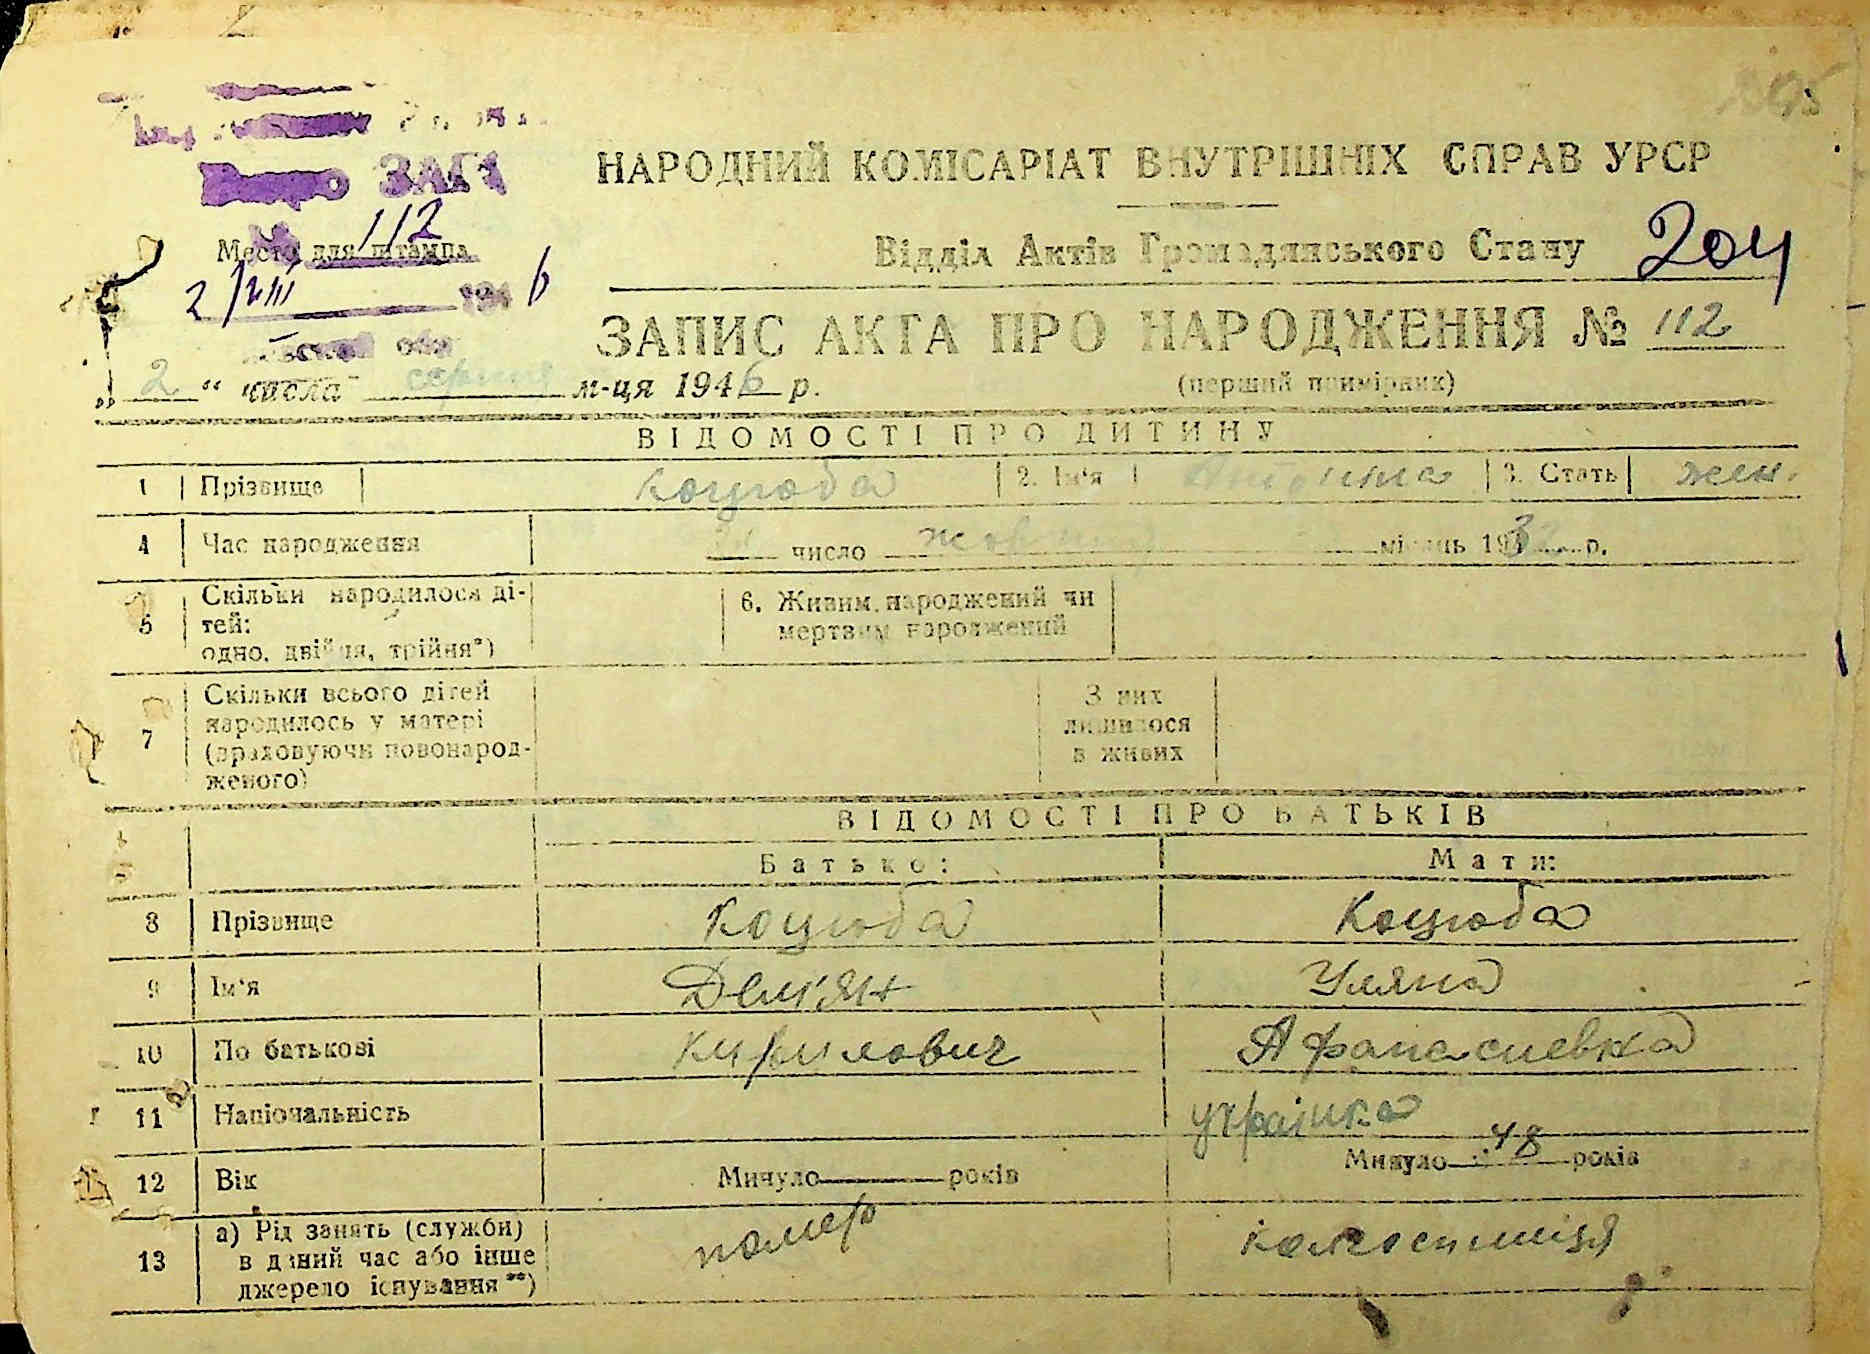 ЗАГС
НАРОДНИЙ КОМІСАРІАТ ВНУТРІШНІХ СПРАВ УРСР
112
Место для штампа
Відділ Актів Громадянського Стану 204
2/VIII 1946
ЗАПИС АКТА ПРО НАРОДЖЕННЯ № 112
обл
„ 2 “ числа серпня м-ця 1946 р.
(перший примірник)
ВІДОМОСТІ ПРО ДИТИНУ
1 Прізвище Коцюба 2. Ім'я Антоніна 3. Стать жен.
4 Час народження число жовтня місяць 193 р.
5 Скільки народилося ді-
тей:
одно, двійня, трійня*)
6. Живим народжений чи
мертвим народжений
7 Скільки всього дітей
народилось у матері
(враховуючи новонарод-
женого)
З них
лишилося
в живих
ВІДОМОСТІ ПРО БАТЬКІВ
Батько: Мати:
8 Прізвище Коцюба Коцюба
9 Ім'я Дем'ян Уляна
10 По батькові Кирилович Афанасиевна
11 Національність українка
12 Вік Минуло років Минуло 48 років
13 а) Рід занять (служби)
в даний час або інше
джерело існування**)
помер колгоспниця